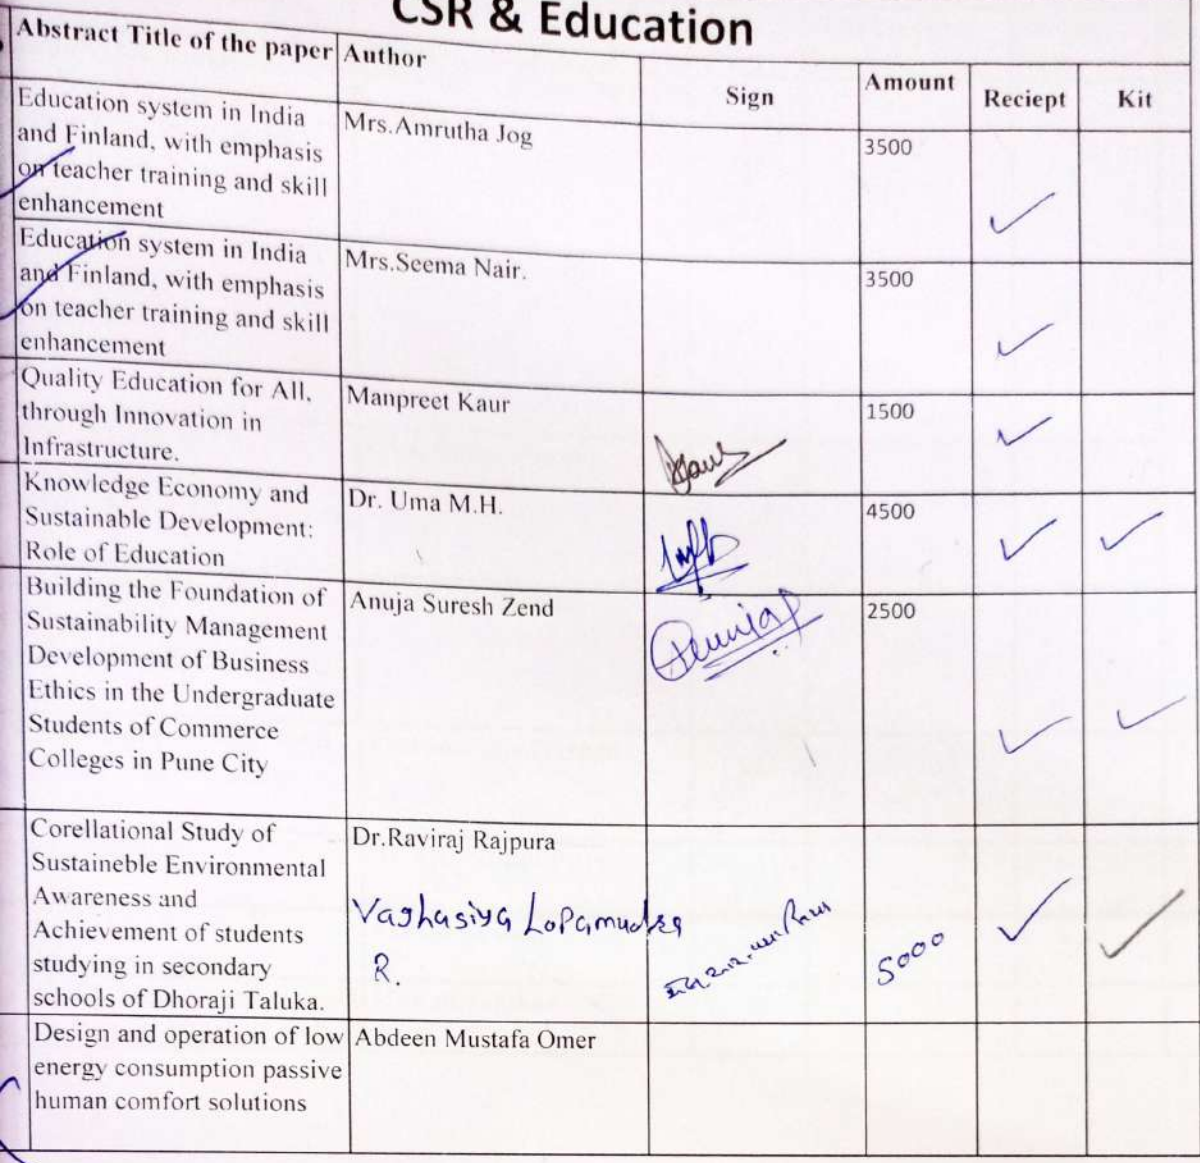 CSR & Education
Abstract Title of the paper Author Sign Amount Reciept Kit
Education system in India
and Finland, with emphasis
on teacher training and skill
enhancement
Mrs.Amrutha Jog
3500
Education system in India
and Finland, with emphasis
on teacher training and skill
enhancement
Mrs.Seema Nair.
3500
Quality Education for All,
through Innovation in
Infrastructure.
Manpreet Kaur
1500
Knowledge Economy and
Sustainable Development:
Role of Education
Dr. Uma M.H.
4500
Building the Foundation of
Sustainability Management
Development of Business
Ethics in the Undergraduate
Students of Commerce
Colleges in Pune City
Anuja Suresh Zend
2500
Corellational Study of
Sustaineble Environmental
Awareness and
Achievement of students
studying in secondary
schools of Dhoraji Taluka.
Dr.Raviraj Rajpura
Vaghasiya Lopamudra
R.
5000
Design and operation of low
energy consumption passive
human comfort solutions
Abdeen Mustafa Omer